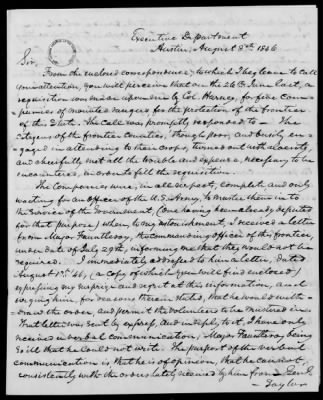 Executive Department
Austin, August 8th 1846
Sir,
From the enclosed correspondence, to which I beg leave to call
your attention, you will perceive that on the 26th June last, a
requisition was made upon me by Col. Harney, for five Com-
panies of mounted rangers for the protection of the frontier
of the State. The call was promptly responded to — The
citizens of the frontier Counties, though poor, and busily en-
gaged in attending to their crops, turned out with alacrity,
and cheerfully met all the trouble and expense, necessary to be
encountered, in order to fill the requisition.
The Companies were, in all respects, complete and only
waiting for an officer of the U.S. Army, to muster them into
the service of the Government, (one having been already deputed
for that purpose) when to my astonishment, I received a letter
from Major Fauntleroy, the commanding officer of the frontier
under date of July 29th, informing me that they would not be
required. I immediately addressed to him a letter, dated
August 1st 46, (a copy of which you will find enclosed)
expressing my surprise and regret at this information, and
urging him, for reasons therein stated, that he would with-
draw the order, and permit the volunteers to be mustered in.
That letter was sent by express, and in reply to it, I have only
received a verbal communication; Major Fauntleroy being
so ill that he could not write. The purport of the verbal
communication is that he is of opinion, that he cannot,
consistently with the orders lately received by him from Genl.
Taylor